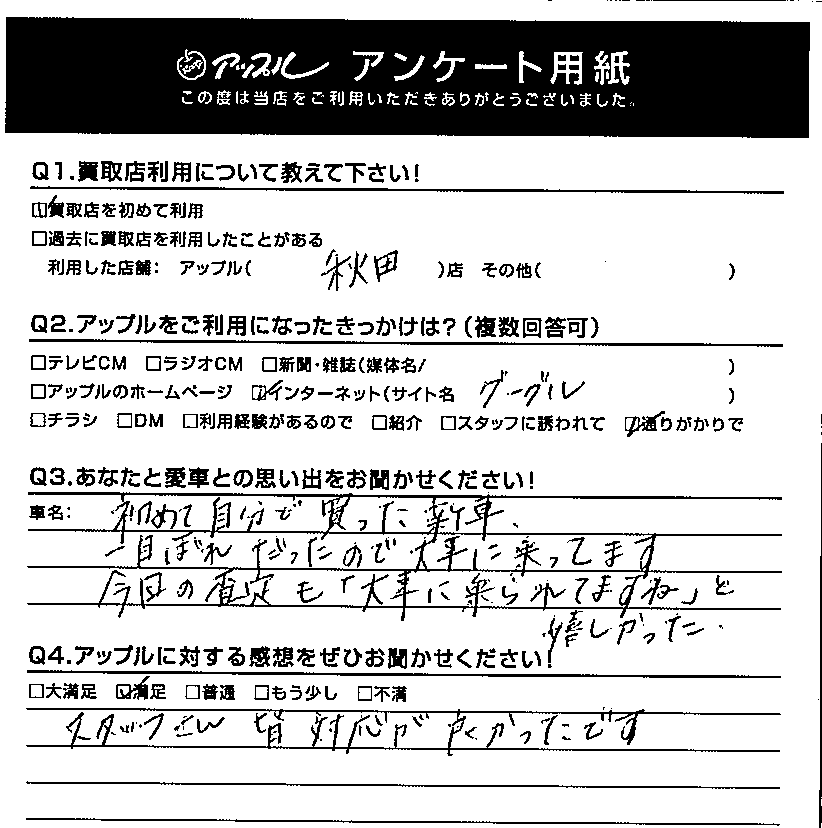 アップル アンケート用紙
この度は当店をご利用いただきありがとうございました。
Q1.買取店利用について教えて下さい!
☑買取店を初めて利用
□過去に買取店を利用したことがある
利用した店舗: アップル( 秋田 )店 その他( )
Q2.アップルをご利用になったきっかけは?(複数回答可)
□テレビCM □ラジオCM □新聞・雑誌(媒体名/ )
□アップルのホームページ ☑インターネット(サイト名 グーグル )
□チラシ □DM □利用経験があるので □紹介 □スタッフに誘われて ☑通りがかりで
Q3.あなたと愛車との思い出をお聞かせください!
車名: 初めて自分で買った新車、
一目ぼれだったので大事に乗ってます
今回の査定も「大事に乗られてますね」と
嬉しかった.
Q4.アップルに対する感想をぜひお聞かせください!
□大満足 ☑満足 □普通 □もう少し □不満
スタッフさん 皆 対応が良かったです